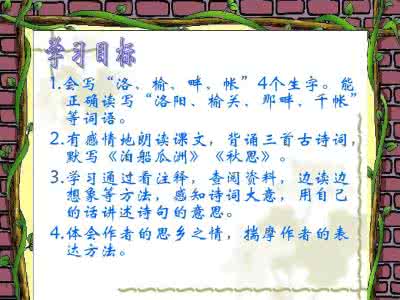 学习目标
1.会写“洛、榆、畔、帐”4个生字。能
正确读写“洛阳、榆关、那畔、千帐”
等词语。
2.有感情地朗读课文，背诵三首古诗词，
默写《泊船瓜洲》《秋思》。
3.学习通过看注释，查阅资料，边读边
想象等方法，感知诗词大意，用自己
的话讲述诗句的意思。
4.体会作者的思乡之情，揣摩作者的表
达方法。